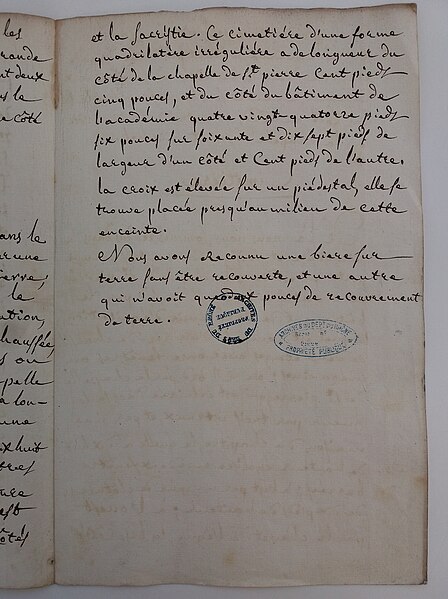 les
rande
nt deux
le
e côté
ans le
une
ierre,
le
ution,
chaussée,
ou
apelle
a lon-
une
ix huit
tres
est
côtés
et la sacristie. Ce cimetière d'une forme
quadrilatère irréguliere a de longueur du
côté de la chapelle de St pierre Cent pieds
cinq pouces, et du côté du bâtiment de
l'académie quatre vingt quatorze pieds
six pouces sur soixante et dix sept pieds de
largeur d'un côté et Cent pieds de l'autre.
la croix est élevée sur un piédestal, elle se
trouve placée presqu'au milieu de cette
enceinte.
Nous avons Reconnu une biere sur
terre sans être recouverte, et une autre
qui n'avoit que dix pouces de recouvrement
de terre.
PROPRIÉTÉ PUBLIQUE
ARCHIVES DU DEPT DU RHÔNE
PROPRIÉTÉ PUBLIQUE